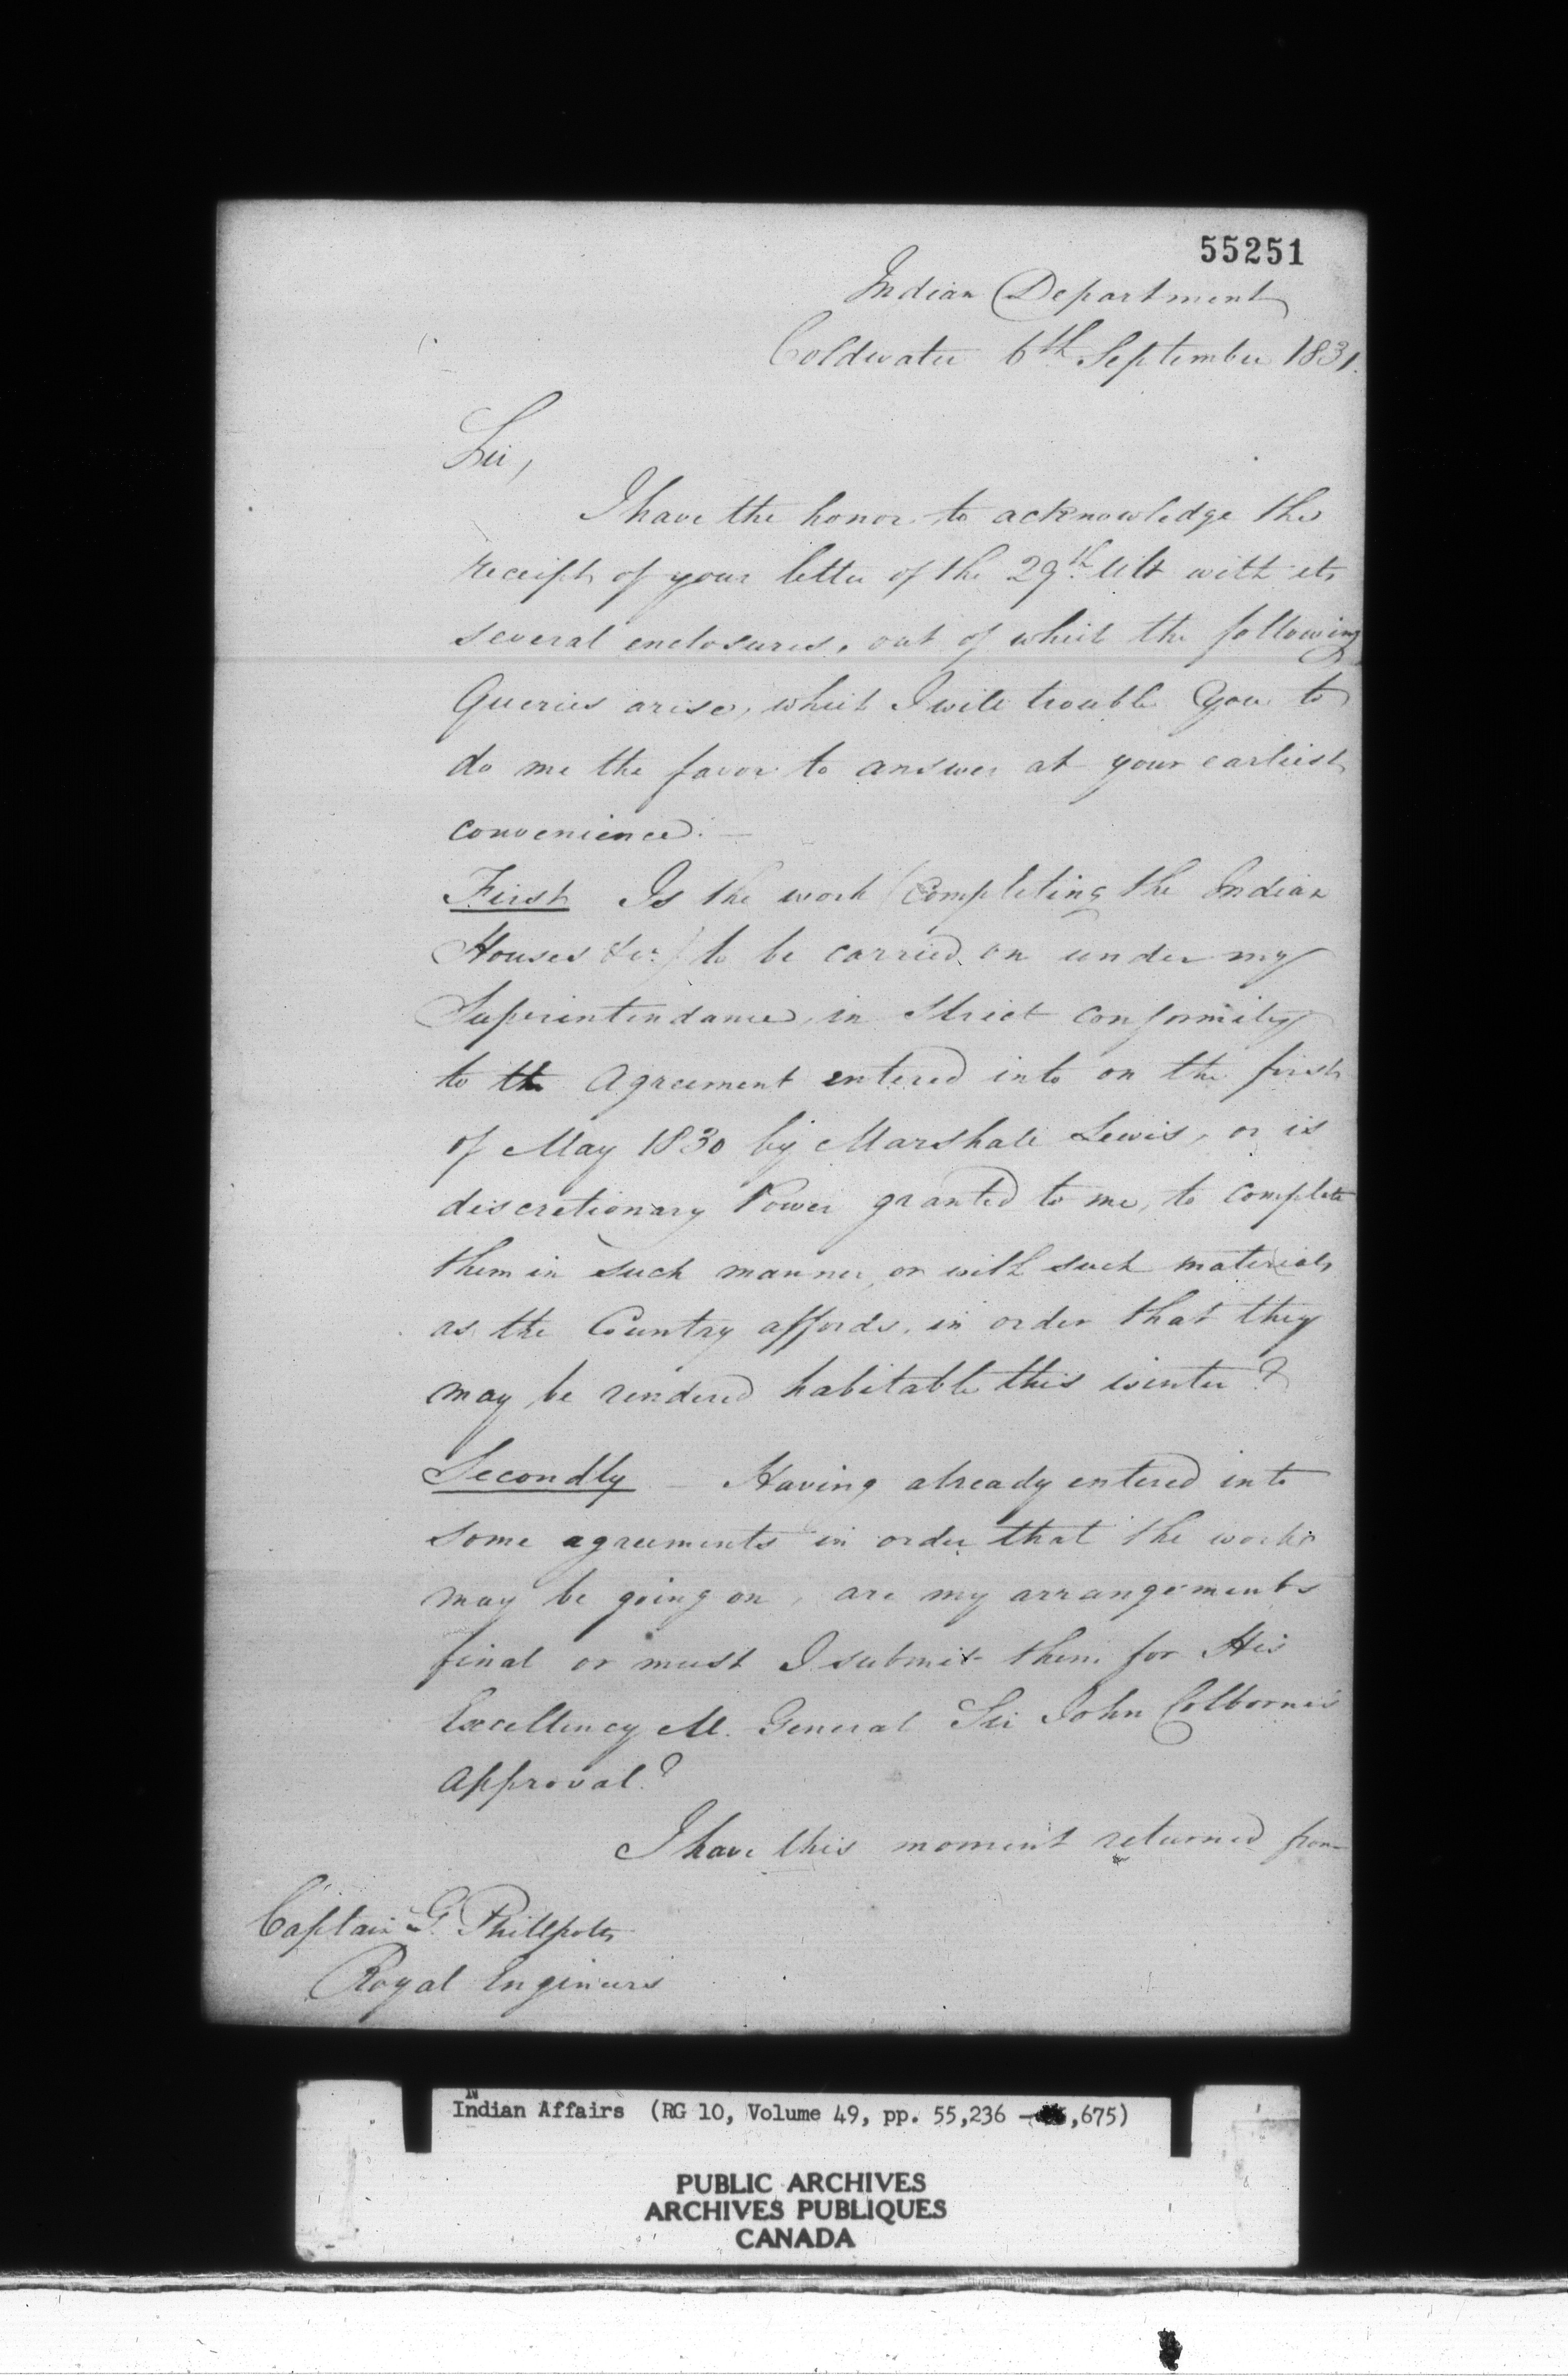 55251
Indian Department
Coldwater 6th September 1831.
Sir,
I have the honor to acknowledge the
receipt of your letter of the 29th Ult with its
several enclosures, out of which the following
Queries arise, which I will trouble you to
do me the favor to answer at your earliest
convenience. —
First Is the work (Completing the Indian
Houses &c.) to be carried on under my
Superintendance, in Strict conformity
to the Agreement entered into on the first
of May 1830 by Marshall Lewis, or is
discretionary Power granted to me, to complete
them in such manner, or with such materials
as the Country affords, in order that they
may be rendered habitable this winter?
Secondly — Having already entered into
some agreements in order that the works
may be going on, are my arrangements
final or must I submit them for His
Excellency M. General Sir John Colborne's
Approval?
I have this moment returned from
Captain G. Phillpotts
Royal Engineers
IN
Indian Affairs (RG 10, Volume 49, pp. 55,236 - ,675)
PUBLIC ARCHIVES
ARCHIVES PUBLIQUES
CANADA